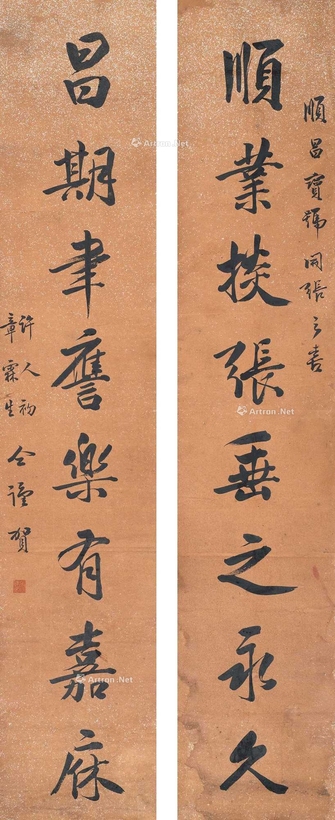 順昌寶號開張之喜
順業掞張垂之永久
昌期聿膺樂有嘉庥
許人初
章霖生
仝謹賀
Artron.Net
Artron.Net
Artron.Net